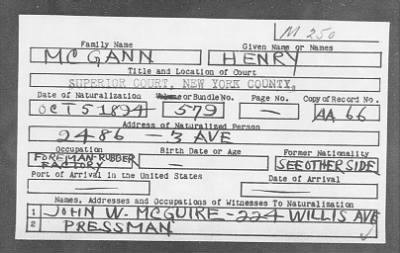 M 250
Family Name Given Name or Names
MC GANN HENRY
Title and Location of Court
SUPERIOR COURT, NEW YORK COUNTY.
Date of Naturalization Volume or Bundle No. Page No. Copy of Record No.
OCT 5 1894 579 — AA 66
Address of Naturalized Person
2486 — 3 AVE
Occupation Birth Date or Age Former Nationality
FOREMAN-RUBBER FACTORY — SEE OTHER SIDE
Port of Arrival in the United States Date of Arrival
Names, Addresses and Occupations of Witnesses To Naturalization
1 JOHN W. MCGUIRE - 224 WILLIS AVE
2 PRESSMAN